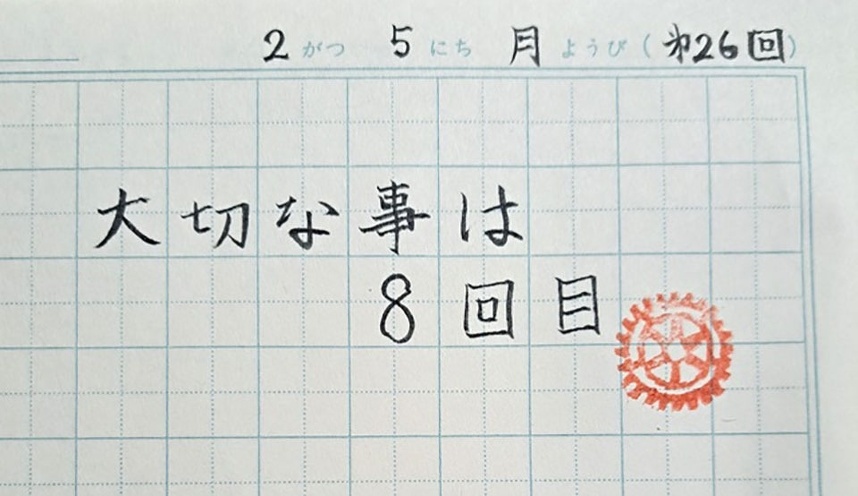 2 がつ 5 にち 月 ようび (第26回)
大切な事は
8回目